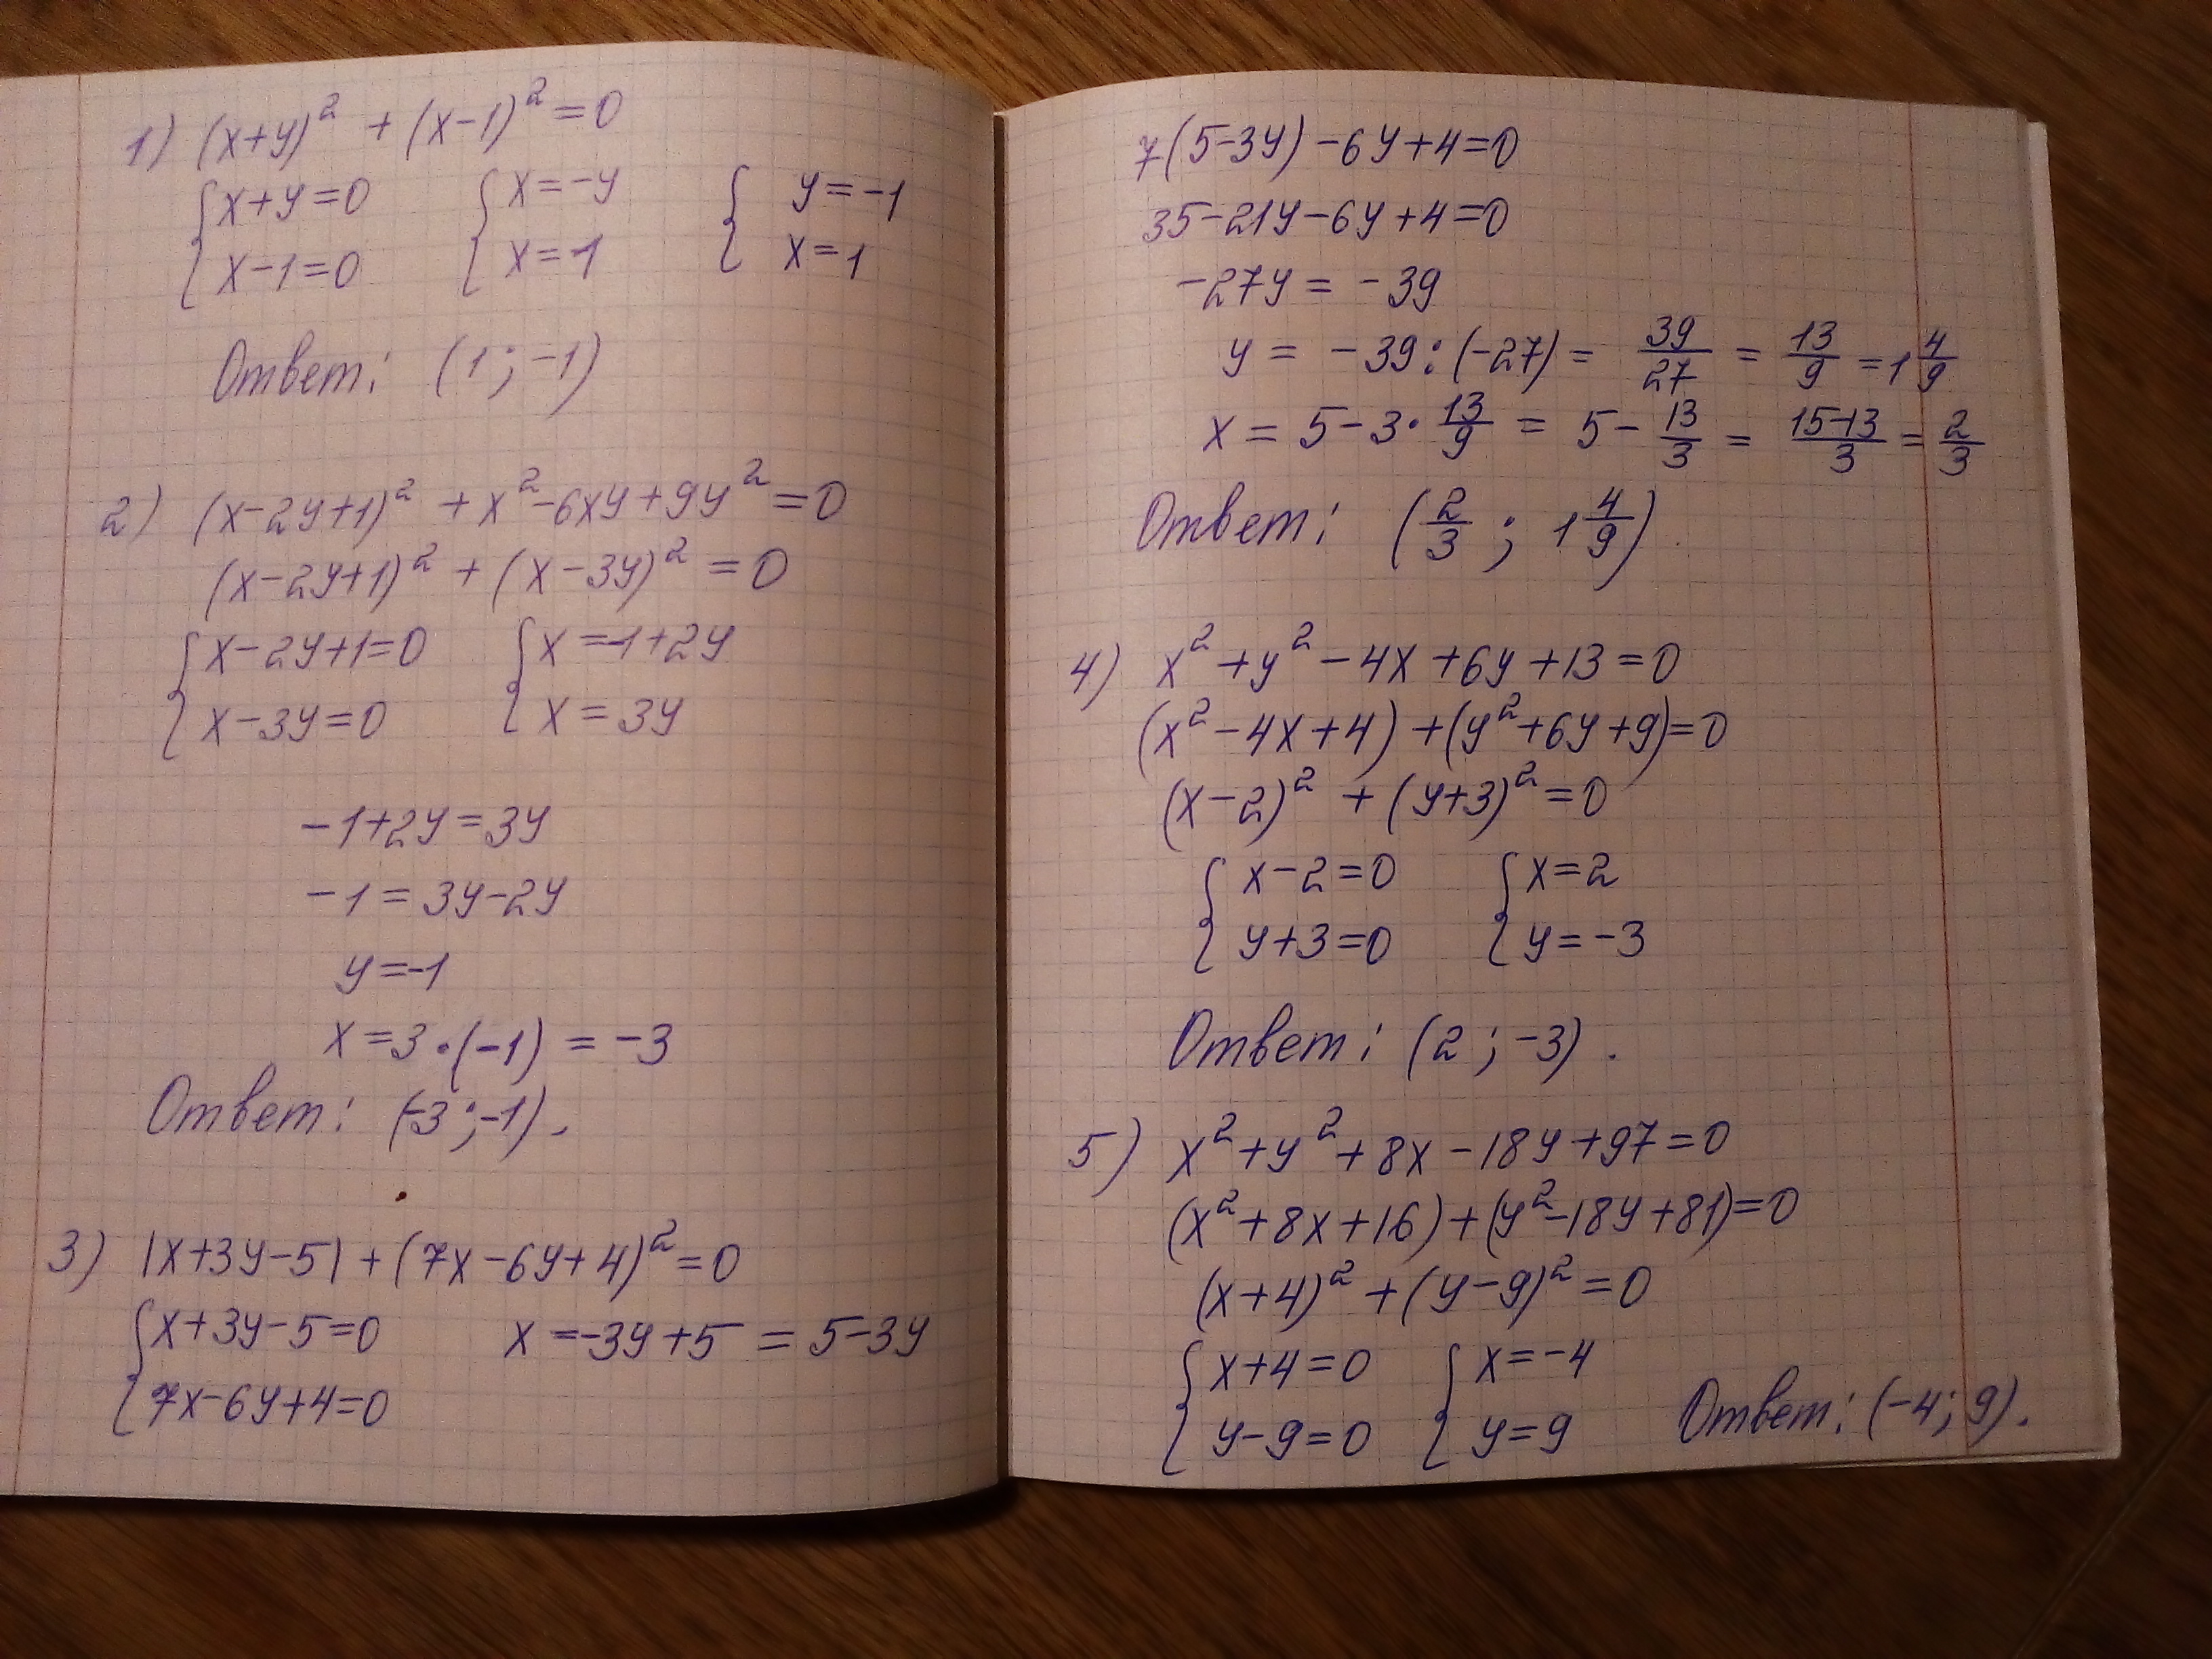 1) (x+y)² + (x-1)² = 0
{x+y=0 {x=-y {y=-1
{x-1=0 {x=1 {x=1
Ответ: (1; -1)
2) (x-2y+1)² + x²-6xy+9y² = 0
(x-2y+1)² + (x-3y)² = 0
{x-2y+1=0 {x=-1+2y
{x-3y=0 {x=3y
-1+2y=3y
-1=3y-2y
y=-1
x=3·(-1) = -3
Ответ: (-3;-1).
3) |x+3y-5| + (7x-6y+4)² = 0
{x+3y-5=0 x=-3y+5 = 5-3y
{7x-6y+4=0
7(5-3y)-6y+4=0
35-21y-6y+4=0
-27y = -39
y = -39:(-27) = 39/27 = 13/9 = 1 4/9
x = 5-3·13/9 = 5-13/3 = (15-13)/3 = 2/3
Ответ: (2/3; 1 4/9).
4) x²+y²-4x+6y+13=0
(x²-4x+4)+(y²+6y+9)=0
(x-2)² + (y+3)² = 0
{x-2=0 {x=2
{y+3=0 {y=-3
Ответ: (2; -3).
5) x²+y²+8x-18y+97=0
(x²+8x+16)+(y²-18y+81)=0
(x+4)²+(y-9)²=0
{x+4=0 {x=-4
{y-9=0 {y=9 Ответ: (-4; 9).